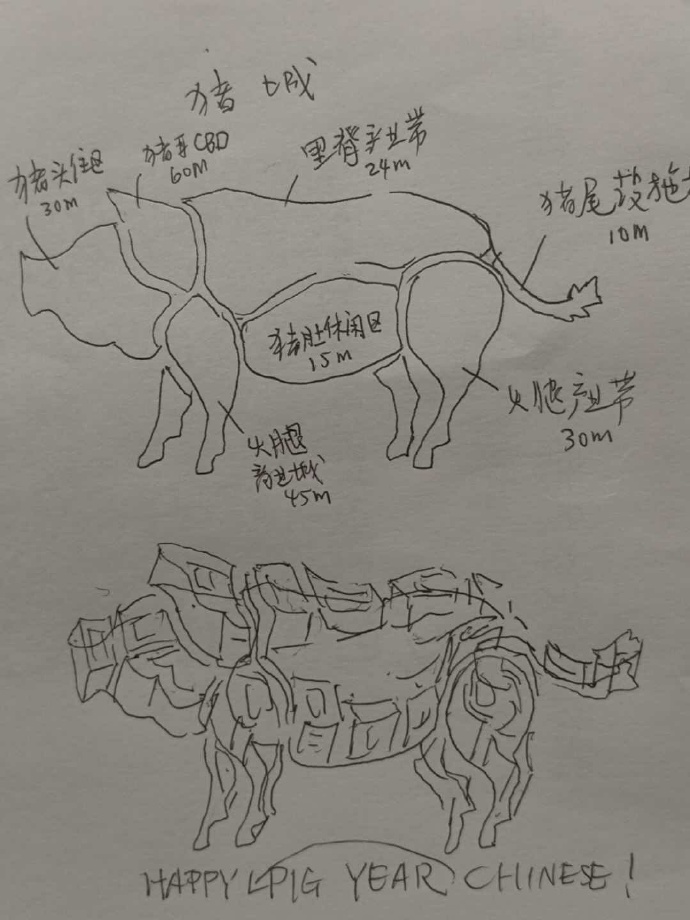 猪城
猪头住区
30m
猪耳CBD
60m
里脊产业带
24m
猪尾设施
10m
猪肚休闲区
15m
火腿产业带
30m
火腿
商业城
45m
HAPPY PIG YEAR CHINESE!